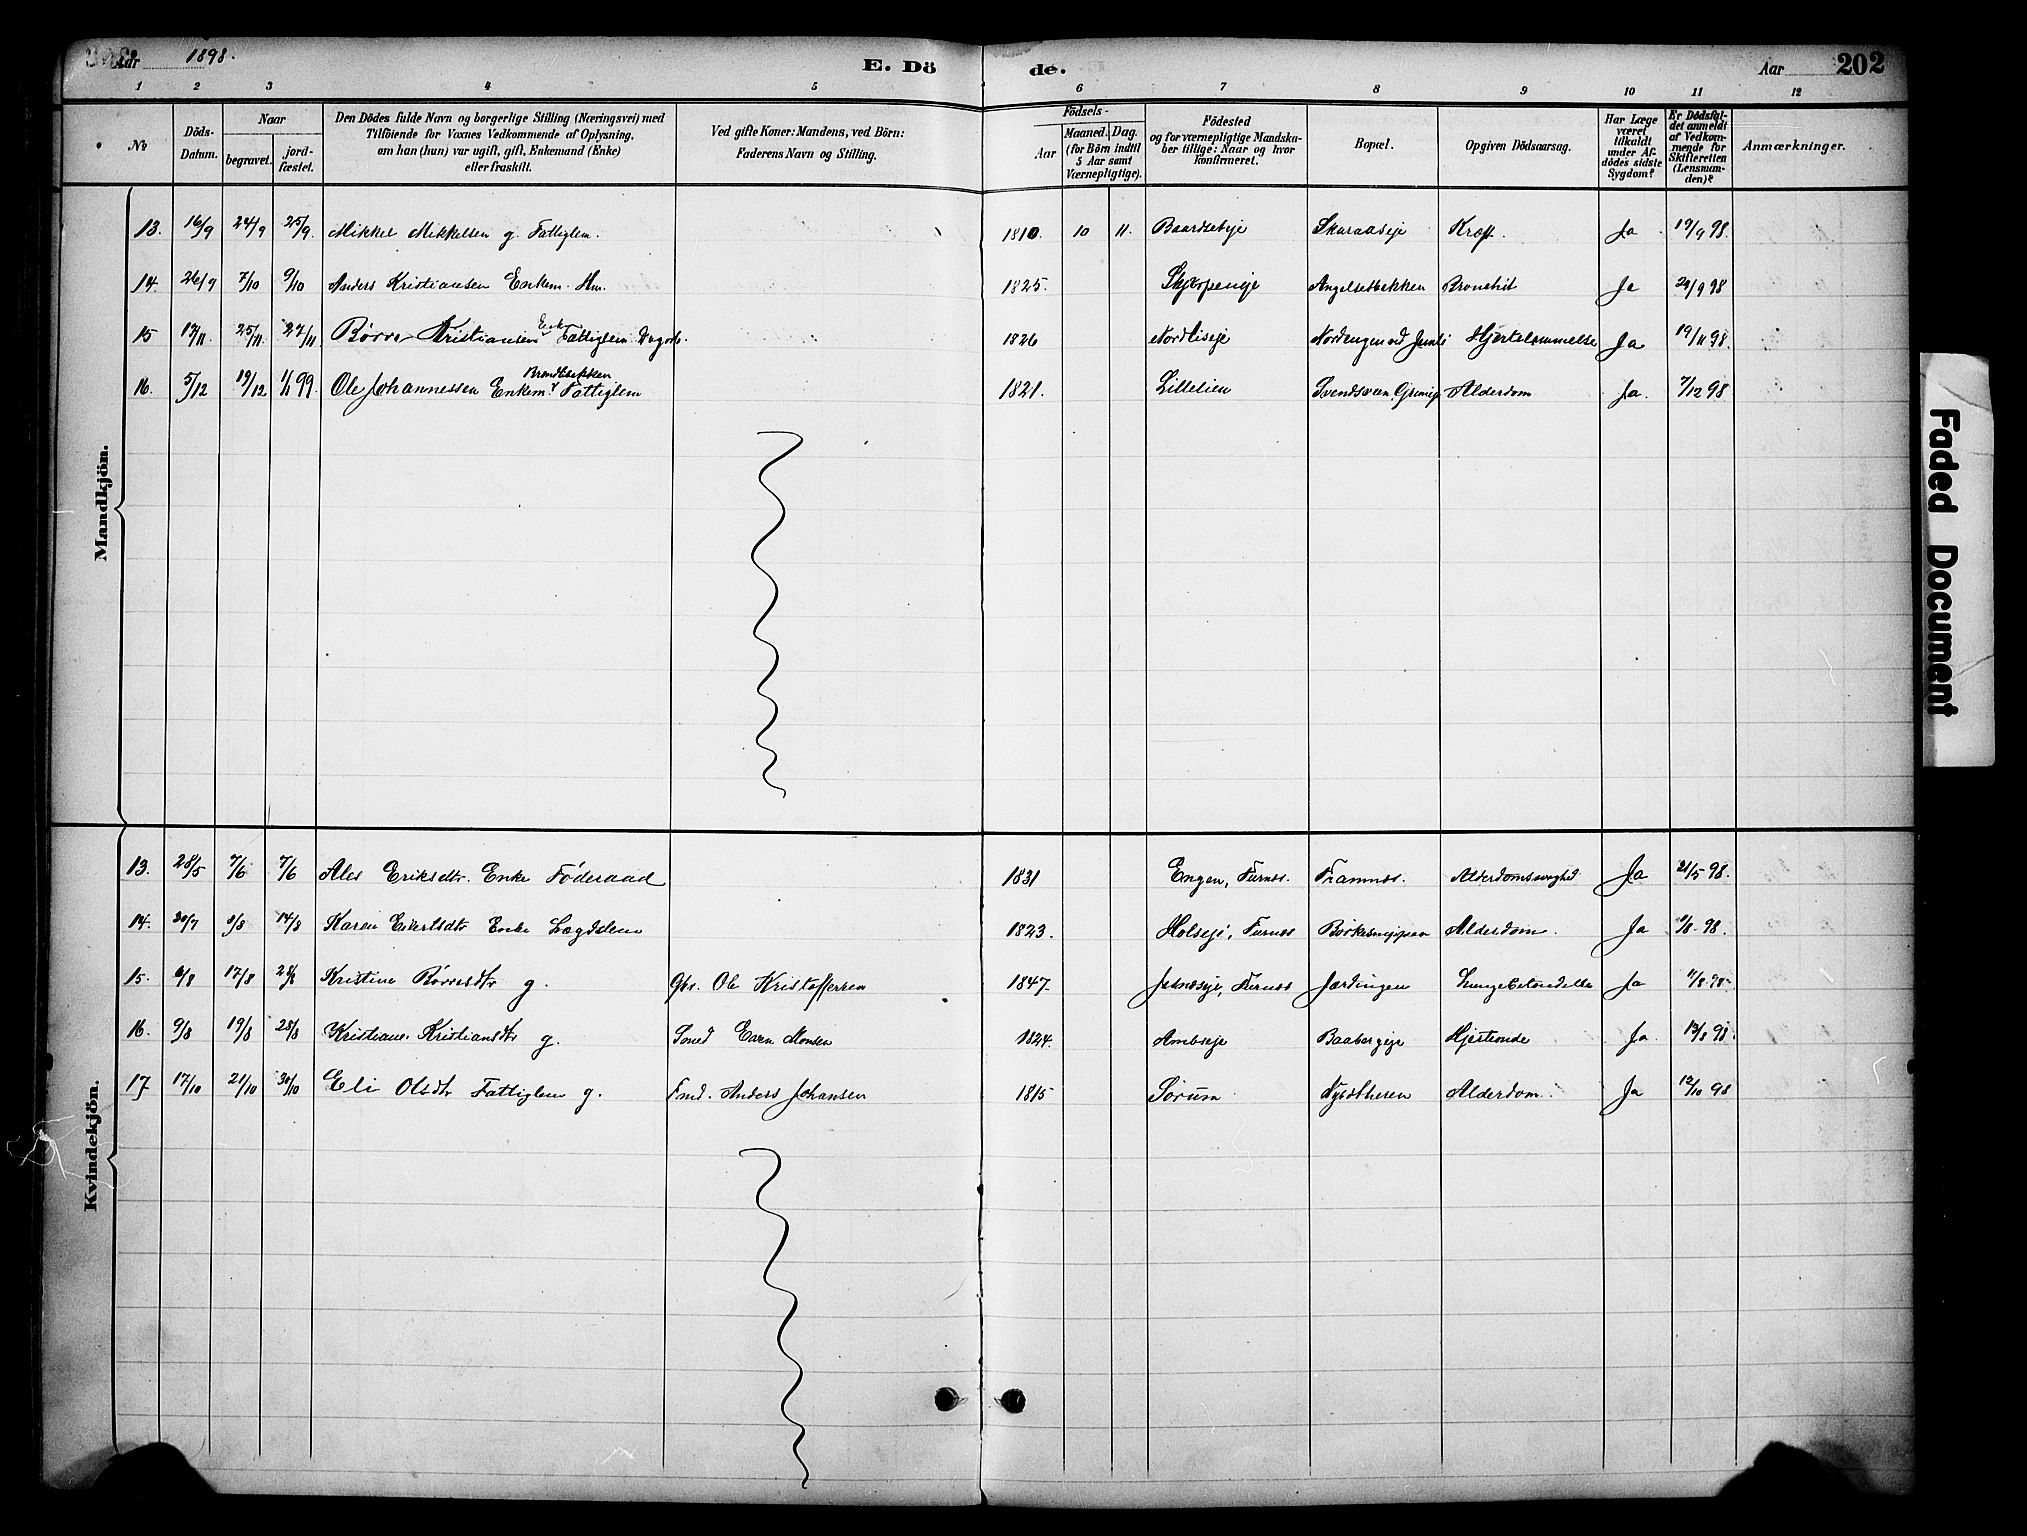 Aar 1898. E. Dö de. Aar 202
1 2 3 4 5 6 7 8 9 10 11 12
No Döds-Datum. Naar begravet. jordfæstet. Den Dödes fulde Navn og borgerlige Stilling (Næringsvei) med Tilföiende for Voxnes Vedkommende af Oplysning, om han (hun) var ugift, gift, Enkemand (Enke) eller fraskilt. Ved gifte Koner: Mandens, ved Börn: Faderens Navn og Stilling. Födsels- Aar Maaned. Dag. (for Börn indtil 5 Aar samt Værnepligtige). Födested og for værnepligtige Mandskaber tillige: Naar og hvor Konfirmeret. Bopæl. Opgiven Dödsaarsag. Har Læge været tilkaldt under Afdödes sidste Sygdom? Er Dödsfaldet anmeldt af Vedkommende for Skifteretten (Lensmanden)? Anmærkninger.
Mandkjön.
13. 16/9 24/9 25/9. Mikkel Mikkelsen g. Fattiglem. 1810. 10 11. Baardseteje Skaraaseje Kræft. Ja 19/9 98.
14. 26/9 7/10 9/10 Anders Kristiansen Enkem. Hm. 1825. Skjerpeneje Angelsetbekken Bronchit Ja 29/9 98
15 17/11 25/11 27/11 Børre Kristiansen Enk. Fattiglem 1826 Nordliseje Nordengen ved Hjertelammelse Ja 19/11 98.
16. 5/12 19/12 1/1 99 Ole Johannessen Enkem. Brændbekken Fattiglem 1821. Lillelien Alderdom Ja. 7/12 98
Kvindekjön.
13. 28/5 7/6 7/6 Ales Eriksdtr. Enke Føderaad 1831 Engen, Furnes. Framnes. Alderdomssvaghed Ja 31/5 98.
14. 30/7 8/8 14/8 Karen Eilertsdtr Enke Lægdslem 1823. Holseje, Furnes Alderdom. Ja 1/8 98.
15. 6/8 17/8 28/8 Kristine Børresdtr g. Gbr. Ole Kristoffersen 1847. Furnes Jærdingen Lungebetændelse Ja 11/8 98
16. 9/8 19/8 28/8 Kristiane Kristiansdtr g. Even Monsen 1824. Ambseje Baabergeje Hjerteonde Ja. 13/8 98.
17. 17/10 21/10 30/10 Eli Olsdtr Fattiglem g. Anders Johansen 1815 Sørum Alderdom. Ja 19/10 98
Faded Document